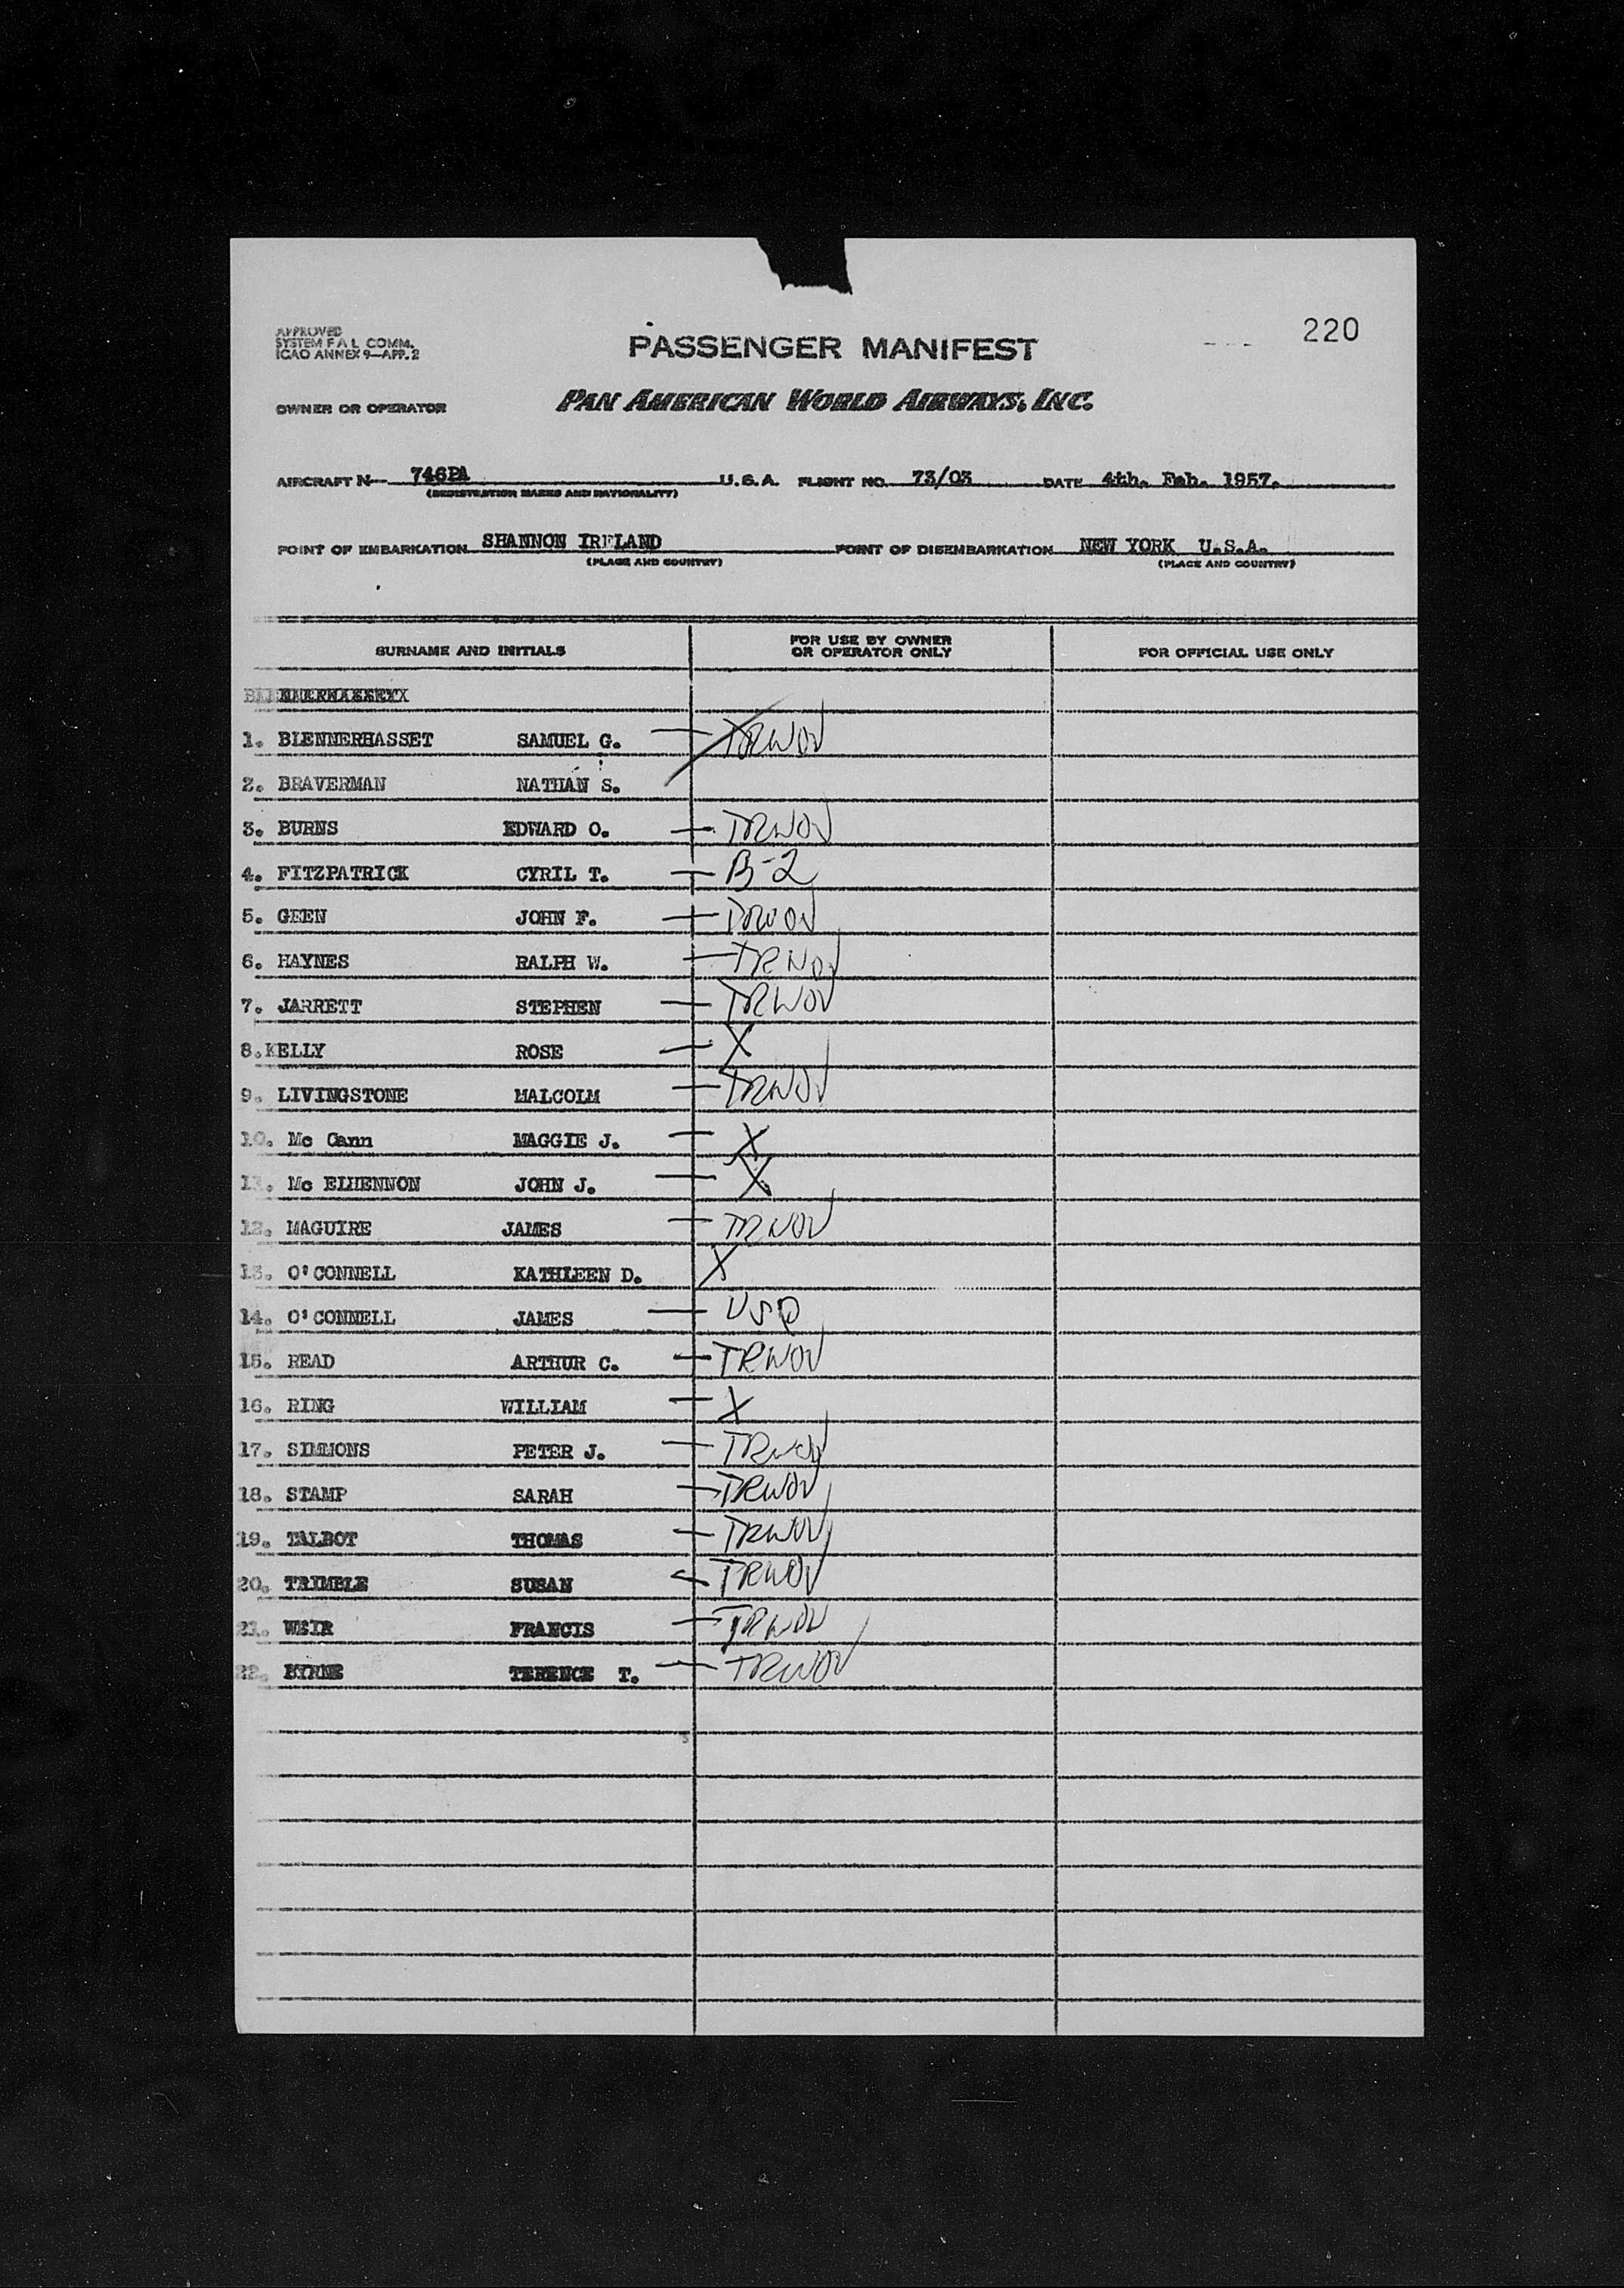 220
APPROVED
SYSTEM F A L COMM.
ICAO ANNEX 9—APP. 2
PASSENGER MANIFEST
OWNER OR OPERATOR PAN AMERICAN WORLD AIRWAYS, INC.
AIRCRAFT N— 746PA U.S.A. FLIGHT NO. 73/03 DATE 4th. Feb. 1957.
(REGISTRATION MARKS AND NATIONALITY)
POINT OF EMBARKATION SHANNON IRELAND POINT OF DISEMBARKATION NEW YORK U.S.A.
(PLACE AND COUNTRY) (PLACE AND COUNTRY)
SURNAME AND INITIALS FOR USE BY OWNER OR OPERATOR ONLY FOR OFFICIAL USE ONLY
1. BLENNERHASSET SAMUEL G. — TRWOV
2. BRAVERMAN NATHAN S.
3. BURNS EDWARD O. — TRWOV
4. FITZPATRICK CYRIL T. — B-2
5. GEEN JOHN F. — TRWOV
6. HAYNES RALPH W. — TRWOV
7. JARRETT STEPHEN — TRWOV
8.KELLY ROSE — X
9. LIVINGSTONE MALCOLM — TRWOV
10. Mc Cann MAGGIE J. — X
11. Mc ELHENNON JOHN J. — X
12. MAGUIRE JAMES — TRWOV
13. O'CONNELL KATHLEEN D. X
14. O'CONNELL JAMES —
15. READ ARTHUR C. — TRWOV
16. RING WILLIAM — X
17. SIMMONS PETER J. — TRWOV
18. STAMP SARAH — TRWOV
19. TALBOT THOMAS — TRWOV
20. TRIMBLE SUSAN — TRWOV
21. WEIR FRANCIS — TRWOV
22. BYRNE TERENCE T. — TRWOV